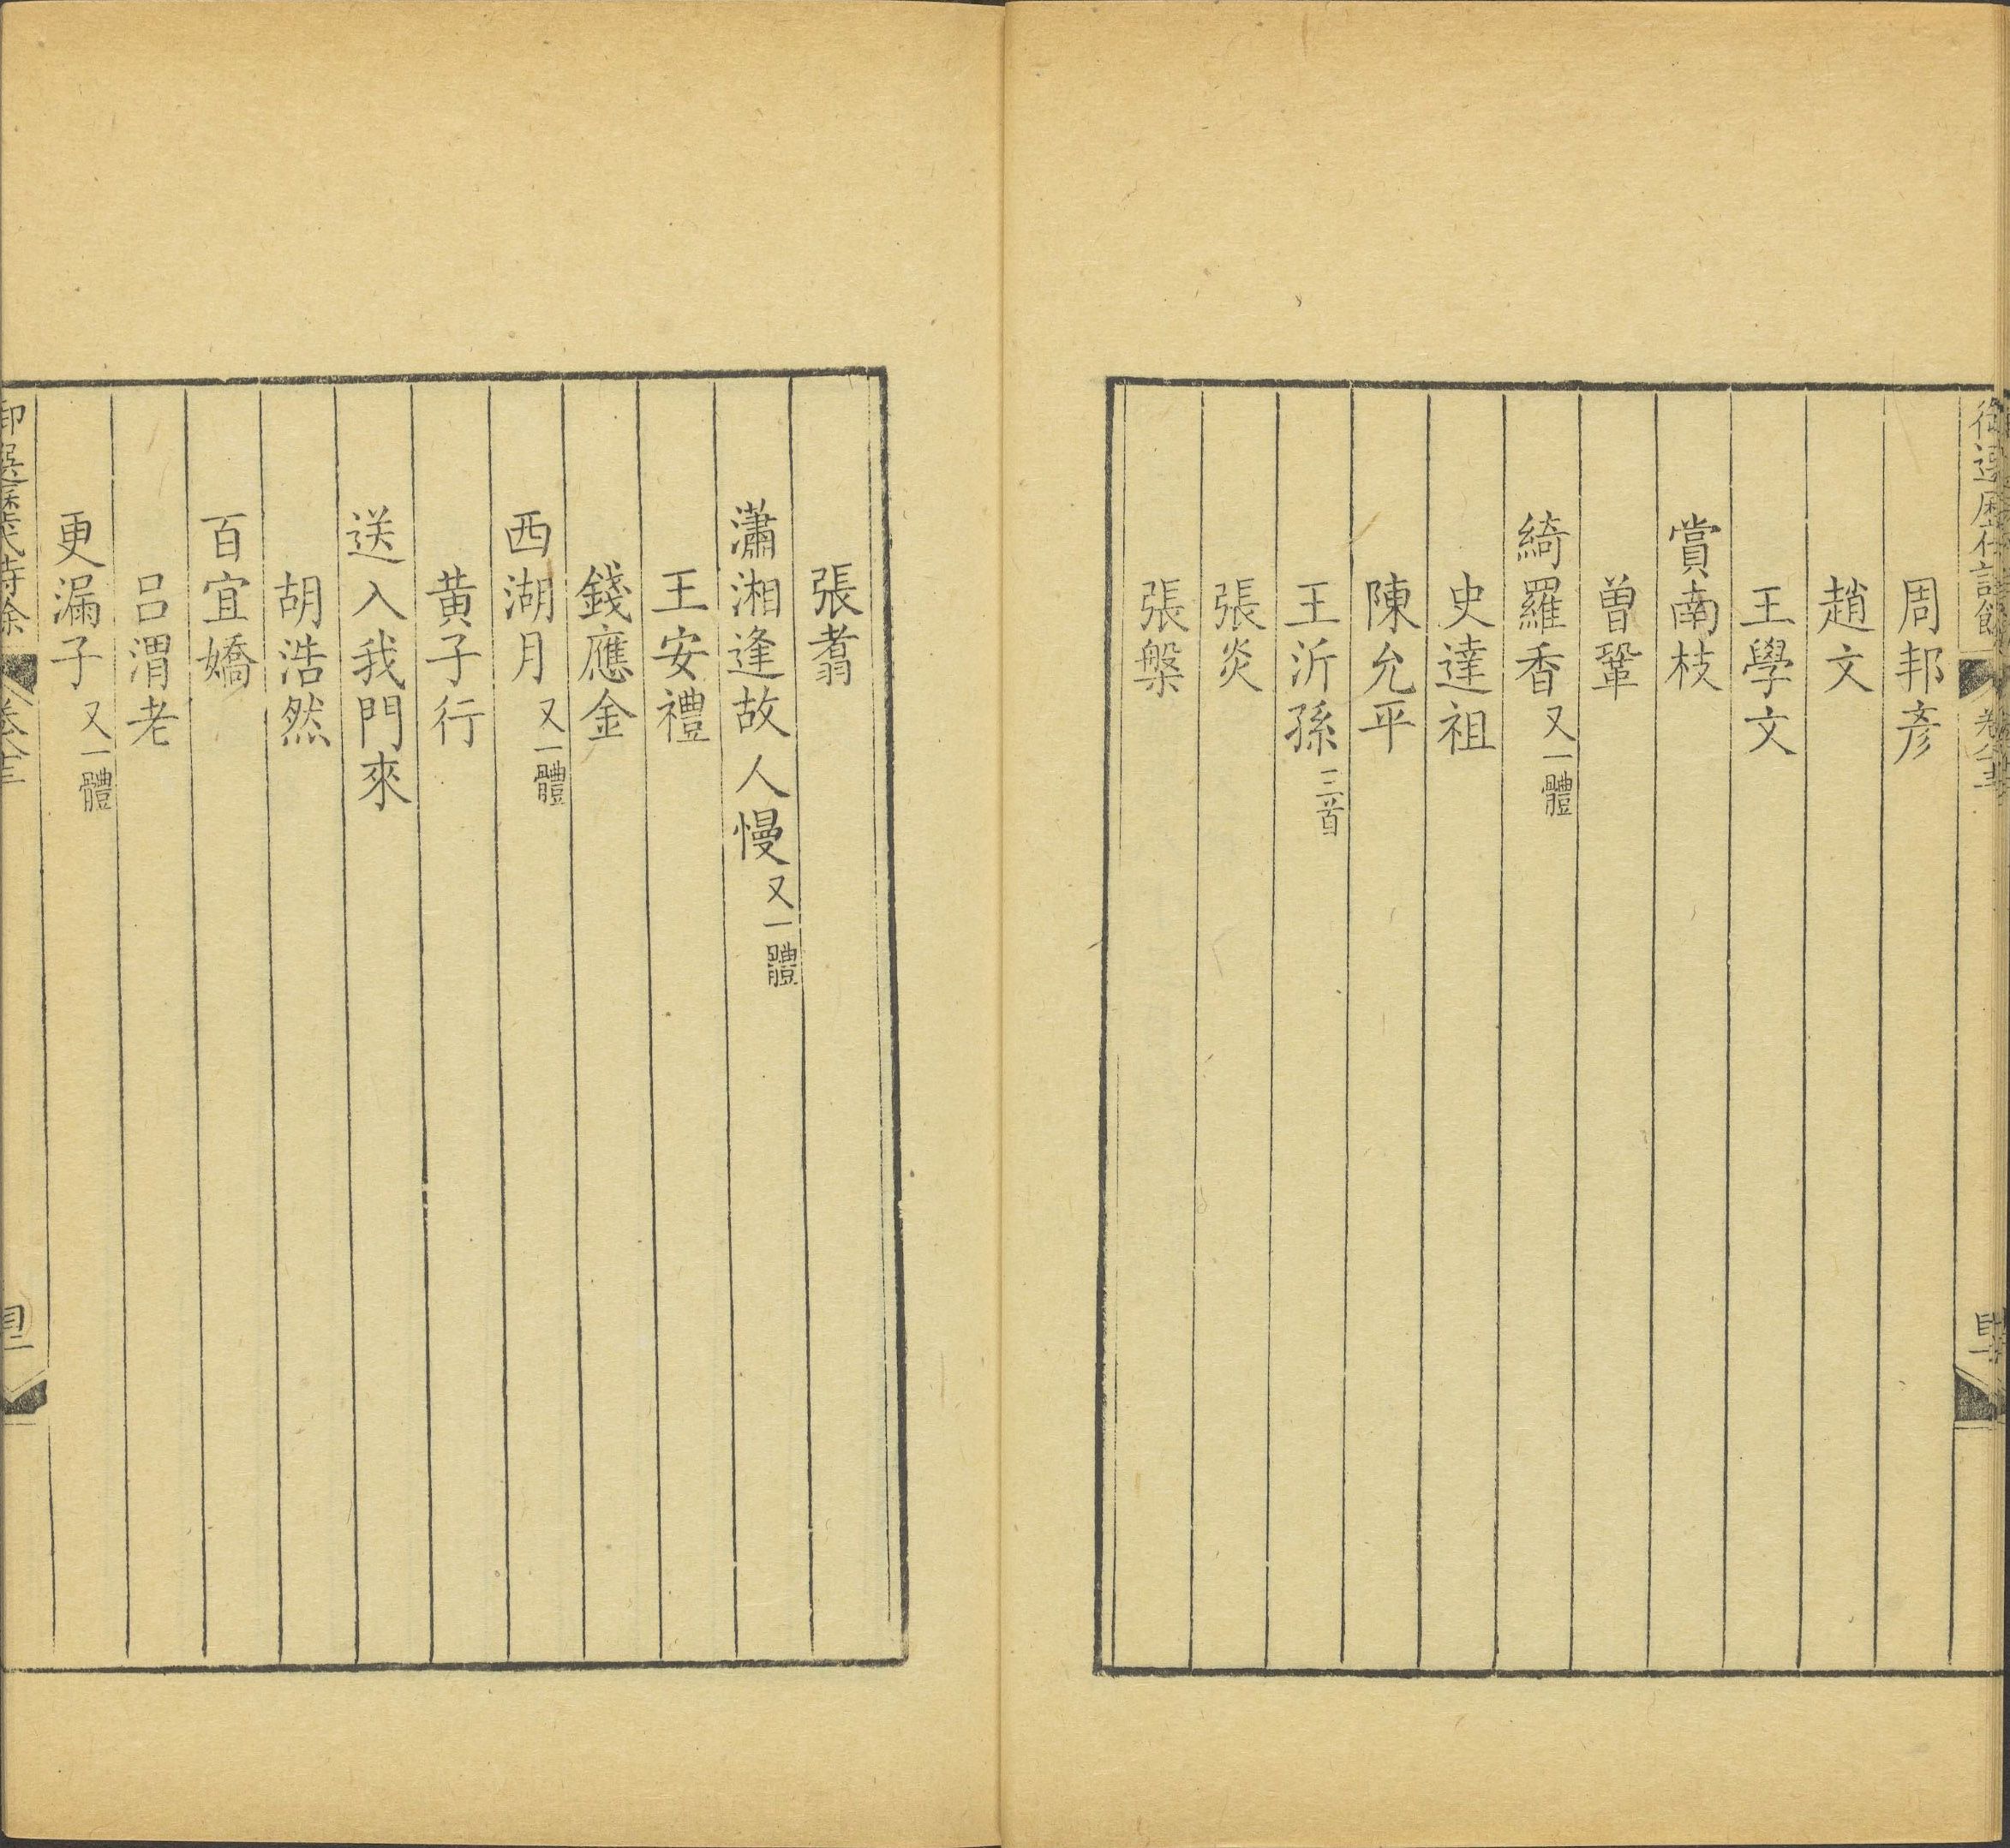 周邦彥
趙文
王學文
賞南枝
曾鞏
綺羅香又一體
史達祖
陳允平
王沂孫三首
張炎
張槃
張翥
瀟湘逢故人慢又一體
王安禮
錢應金
西湖月又一體
黃子行
送入我門來
胡浩然
百宜嬌
呂渭老
更漏子又一體
御選歷代詩餘